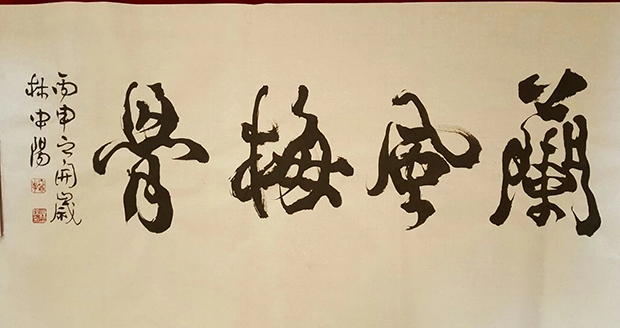 蘭風梅骨
丙申之開歲
林中陽